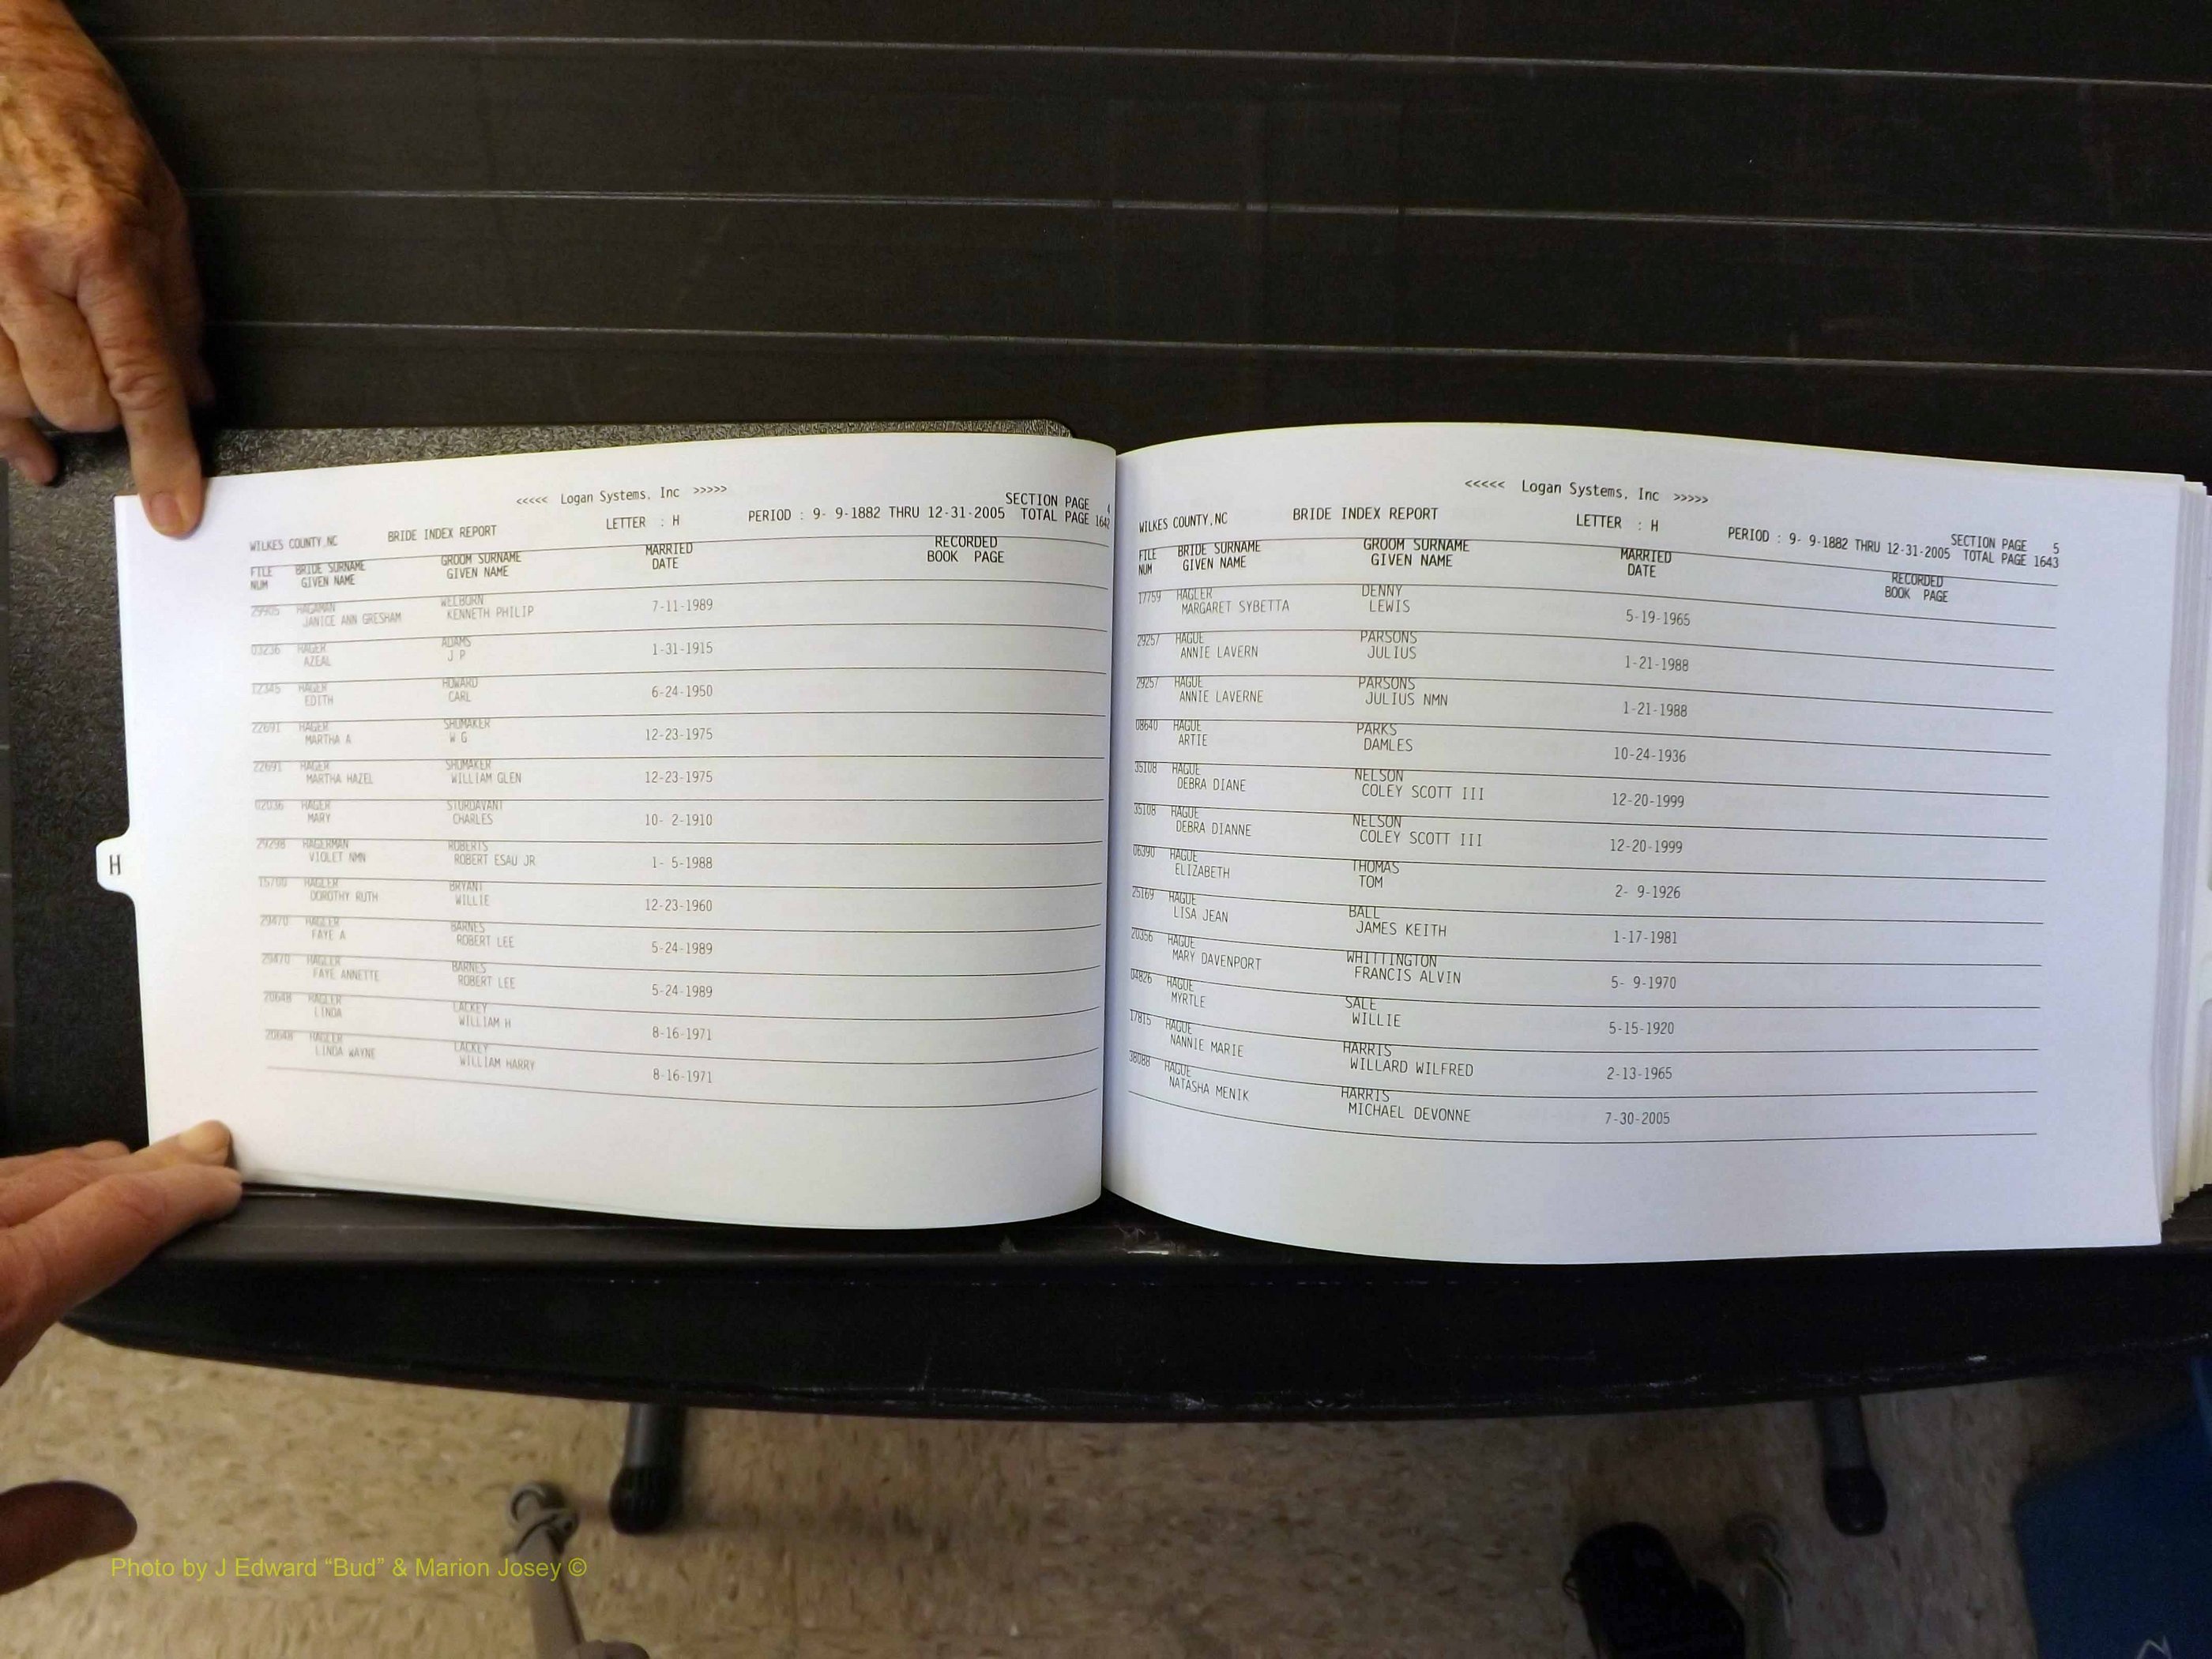 <<<<< Logan Systems, Inc >>>>>
SECTION PAGE
WILKES COUNTY,NC BRIDE INDEX REPORT LETTER : H PERIOD : 9- 9-1882 THRU 12-31-2005 TOTAL PAGE 1642
FILE BRIDE SURNAME GROOM SURNAME MARRIED RECORDED
NUM GIVEN NAME GIVEN NAME DATE BOOK PAGE
29905 HAGAMAN WELBORN
JANICE ANN GRESHAM KENNETH PHILIP 7-11-1989
03236 HAGER ADAMS
AZEAL J P 1-31-1915
12345 HAGER HOWARD
EDITH CARL 6-24-1950
22691 HAGER SHUMAKER
MARTHA A W G 12-23-1975
22691 HAGER SHUMAKER
MARTHA HAZEL WILLIAM GLEN 12-23-1975
02036 HAGER STURDAVANT
MARY CHARLES 10- 2-1910
29298 HAGERMAN ROBERTS
VIOLET NMN ROBERT ESAU JR 1- 5-1988
15700 HAGLER BRYANT
DOROTHY RUTH WILLIE 12-23-1960
29470 HAGLER BARNES
FAYE A ROBERT LEE 5-24-1989
29470 HAGLER BARNES
FAYE ANNETTE ROBERT LEE 5-24-1989
20648 HAGLER LACKEY
LINDA WILLIAM H 8-16-1971
20648 HAGLER LACKEY
LINDA WAYNE WILLIAM HARRY 8-16-1971
H
<<<<< Logan Systems, Inc >>>>>
SECTION PAGE 5
WILKES COUNTY,NC BRIDE INDEX REPORT LETTER : H PERIOD : 9- 9-1882 THRU 12-31-2005 TOTAL PAGE 1643
FILE BRIDE SURNAME GROOM SURNAME MARRIED RECORDED
NUM GIVEN NAME GIVEN NAME DATE BOOK PAGE
17759 HAGLER DENNY
MARGARET SYBETTA LEWIS 5-19-1965
29257 HAGUE PARSONS
ANNIE LAVERN JULIUS 1-21-1988
29257 HAGUE PARSONS
ANNIE LAVERNE JULIUS NMN 1-21-1988
08640 HAGUE PARKS
ARTIE DAMLES 10-24-1936
35108 HAGUE NELSON
DEBRA DIANE COLEY SCOTT III 12-20-1999
35108 HAGUE NELSON
DEBRA DIANNE COLEY SCOTT III 12-20-1999
06390 HAGUE THOMAS
ELIZABETH TOM 2- 9-1926
25169 HAGUE BALL
LISA JEAN JAMES KEITH 1-17-1981
20356 HAGUE WHITTINGTON
MARY DAVENPORT FRANCIS ALVIN 5- 9-1970
04826 HAGUE SALE
MYRTLE WILLIE 5-15-1920
17815 HAGUE HARRIS
NANNIE MARIE WILLARD WILFRED 2-13-1965
38088 HAGUE HARRIS
NATASHA MENIK MICHAEL DEVONNE 7-30-2005
Photo by J Edward “Bud” & Marion Josey ©